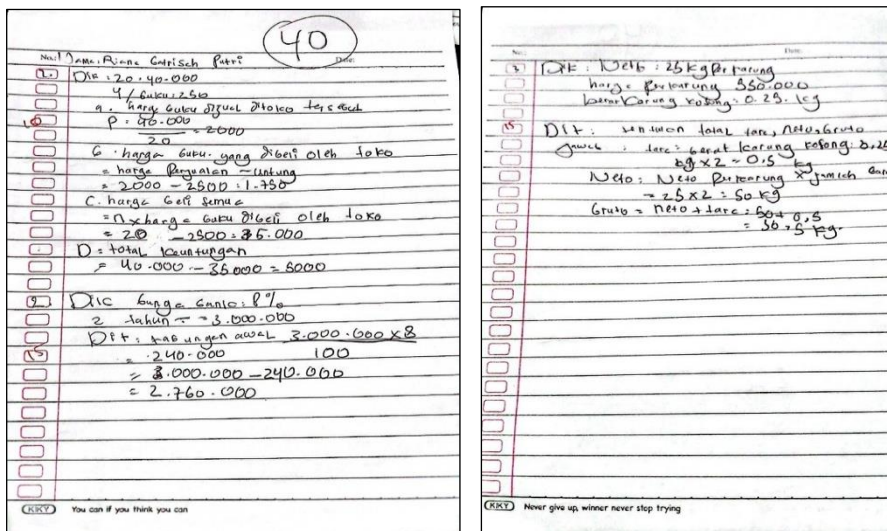 40
No:
Nama: Riana Gatrisch Putri
Date:
1. Dik : 20 . 40.000
4/buku : 250
a. harga buku dijual ditoko tersebut
10
P = 40.000
20 = 2000
b. harga buku yang dibeli oleh toko
= harga Penjualan - Untung
= 2000 - 2500 : 1.750
C. harga beli semua
= n x harga buku dibeli oleh toko
= 20 - 2500 = 35.000
D = total keuntungan
= 40.000 - 35.000 = 5000
2. Dik bunga : 8%
2 tahun = 3.000.000
Dit : tabungan awal 3.000.000 x 8
15 = 240.000 100
= 3.000.000 - 240.000
= 2.760.000
KKY You can if you think you can
No:
Date:
3 Dik : Neto : 25 kg Per karung
harga Perkarung 350.000
berat karung kosong : 0.25. kg
15 Dit : tentukan total tara, neto, bruto
Jawab : tara = berat karung kosong : 0,25
kg x 2 = 0,5 kg
Neto : Neto Perkarung x jumlah
= 25 x 2 = 50 kg
bruto = neto + tara = 50 + 0,5
= 50,5 kg.
KKY Never give up, winner never stop trying